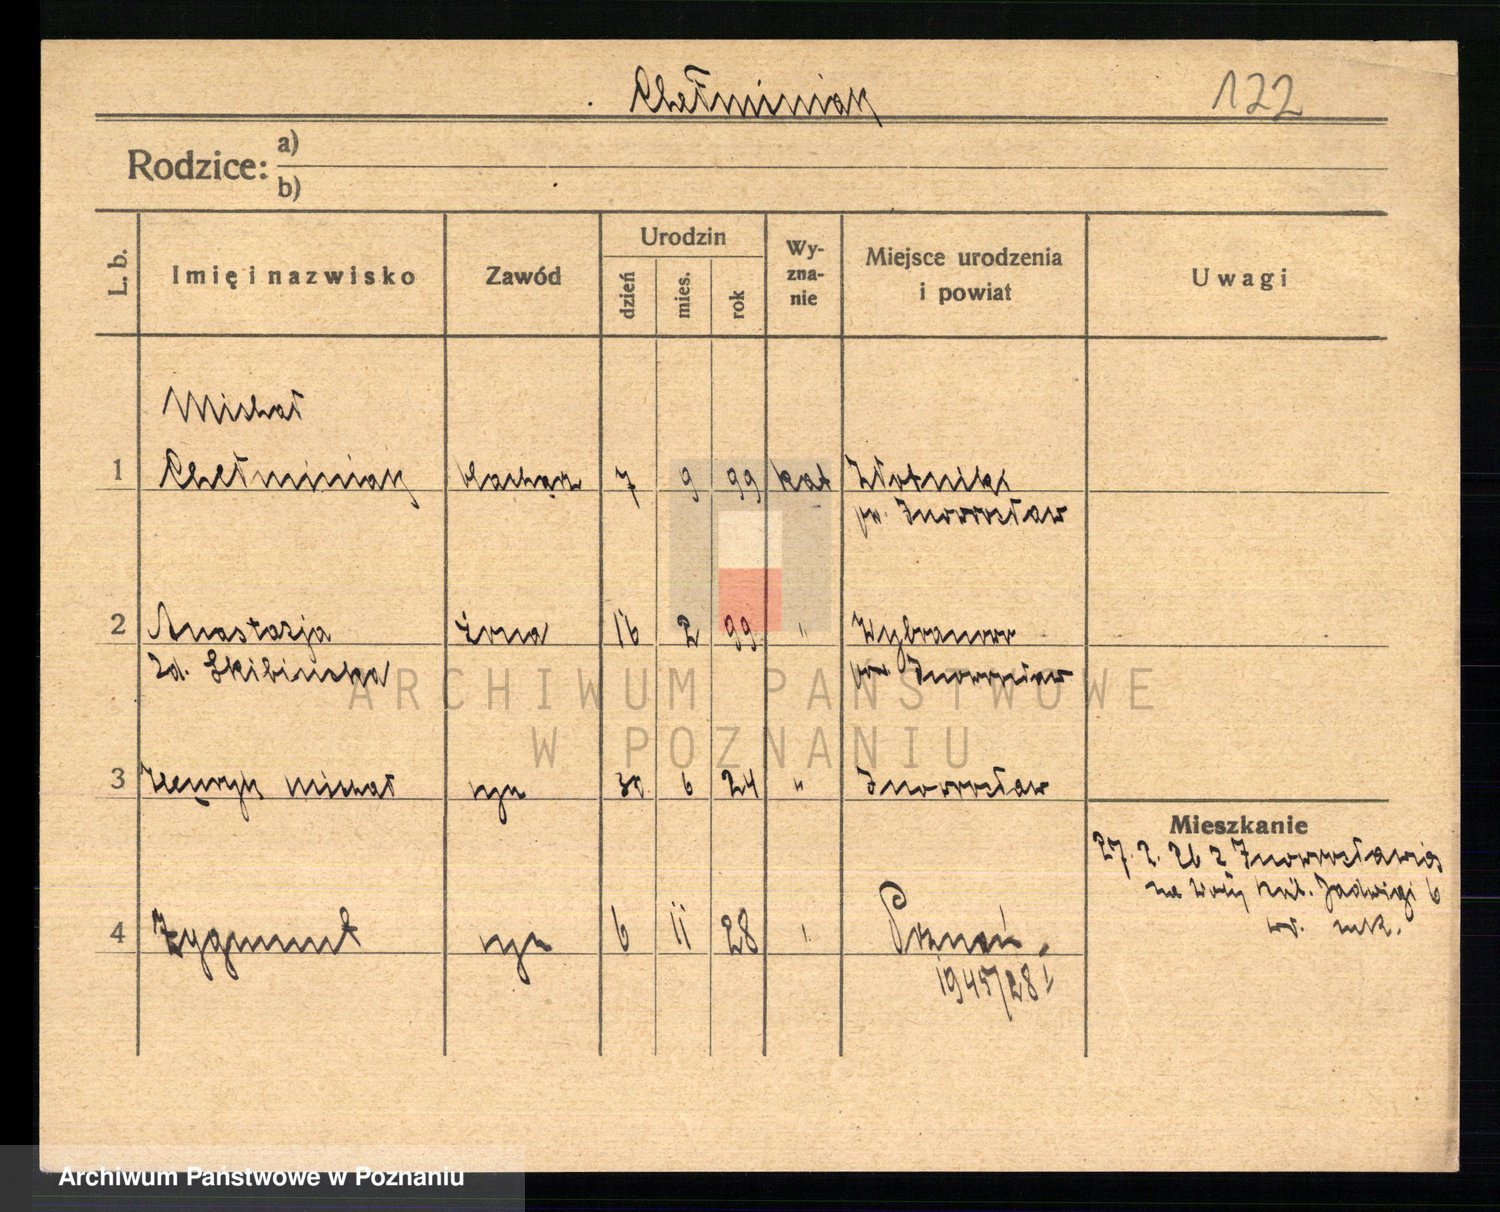 Chełminiak
122
Rodzice:
a)
b)
L. b.
Imię i nazwisko
Zawód
Urodzin
dzień
mies.
rok
Wy-
zna-
nie
Miejsce urodzenia
i powiat
Uwagi
Michał
1 Chełminiak blacharz 7 9 99 kat Złotniki
pw. Inowrocław
2 Anastazja żona 16 2 99 " Wybranowo
zd. Skibińska pow Inowrocław
3 Henryk Michał syn 30 6 24 " Inowrocław
Mieszkanie
27. 2. 26 z Inowrocławia
na Jadwigi 6
4 Zygmunt syn 6 11 28 " Poznań.
1945/28 I
ARCHIWUM PAŃSTWOWE
W POZNANIU
Archiwum Państwowe w Poznaniu